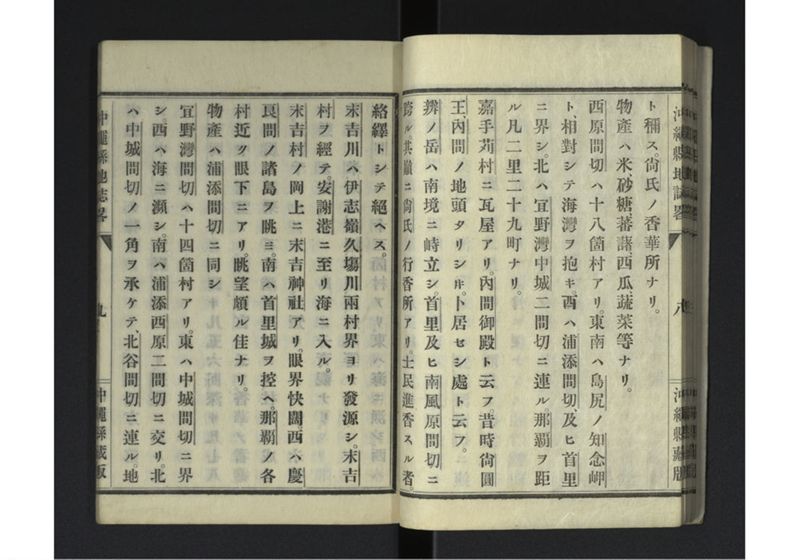 沖繩縣地誌畧
八
沖繩縣藏版
ト稱ス尙氏ノ香華所ナリ。
物產ハ米、砂糖、蕃藷、西瓜、蔬菜等ナリ。
西原間切ハ十八箇村アリ。東南ハ島尻ノ知念岬
ト、相對シテ海灣ヲ抱キ、西ハ浦添間切、及ヒ首里
ニ界シ。北ハ宜野灣、中城、二間切ニ連ル、那覇ヲ距
ル凡二里二十九町ナリ。
嘉手苅村ニ瓦屋アリ。內間御殿ト云フ、昔時尙圓
王、內間ノ地頭タリシ片、卜居セシ處ト云フ。
辨ノ岳ハ南境ニ峙立シ、首里及ヒ南風原間切ニ
跨ル其巓ニ尙氏ノ行香所アリ。士民進香スル者
絡繹トシテ絕ヘス。
末吉川ハ伊志嶺久塲川兩村界ヨリ發源シ。末吉
村ヲ經テ、安謝港ニ至リ海ニ入ル。
末吉村ノ岡上ニ末吉神社アリ。眼界快闊、西ハ慶
良間ノ諸島ヲ眺ミ。南ハ首里城ヲ控ヘ。那覇ノ各
村近ク眼下ニアリ。眺望頗ル佳ナリ。
物產ハ浦添間切ニ同シ
宜野灣間切ハ十四箇村アリ。東ハ中城間切ニ界
シ、西ハ海ニ瀕シ。南ハ浦添西原二間切ニ交リ。北
ハ中城間切ノ一角ヲ承ケテ、北谷間切ニ連ル。地
沖繩縣地志畧
九
沖繩縣藏版